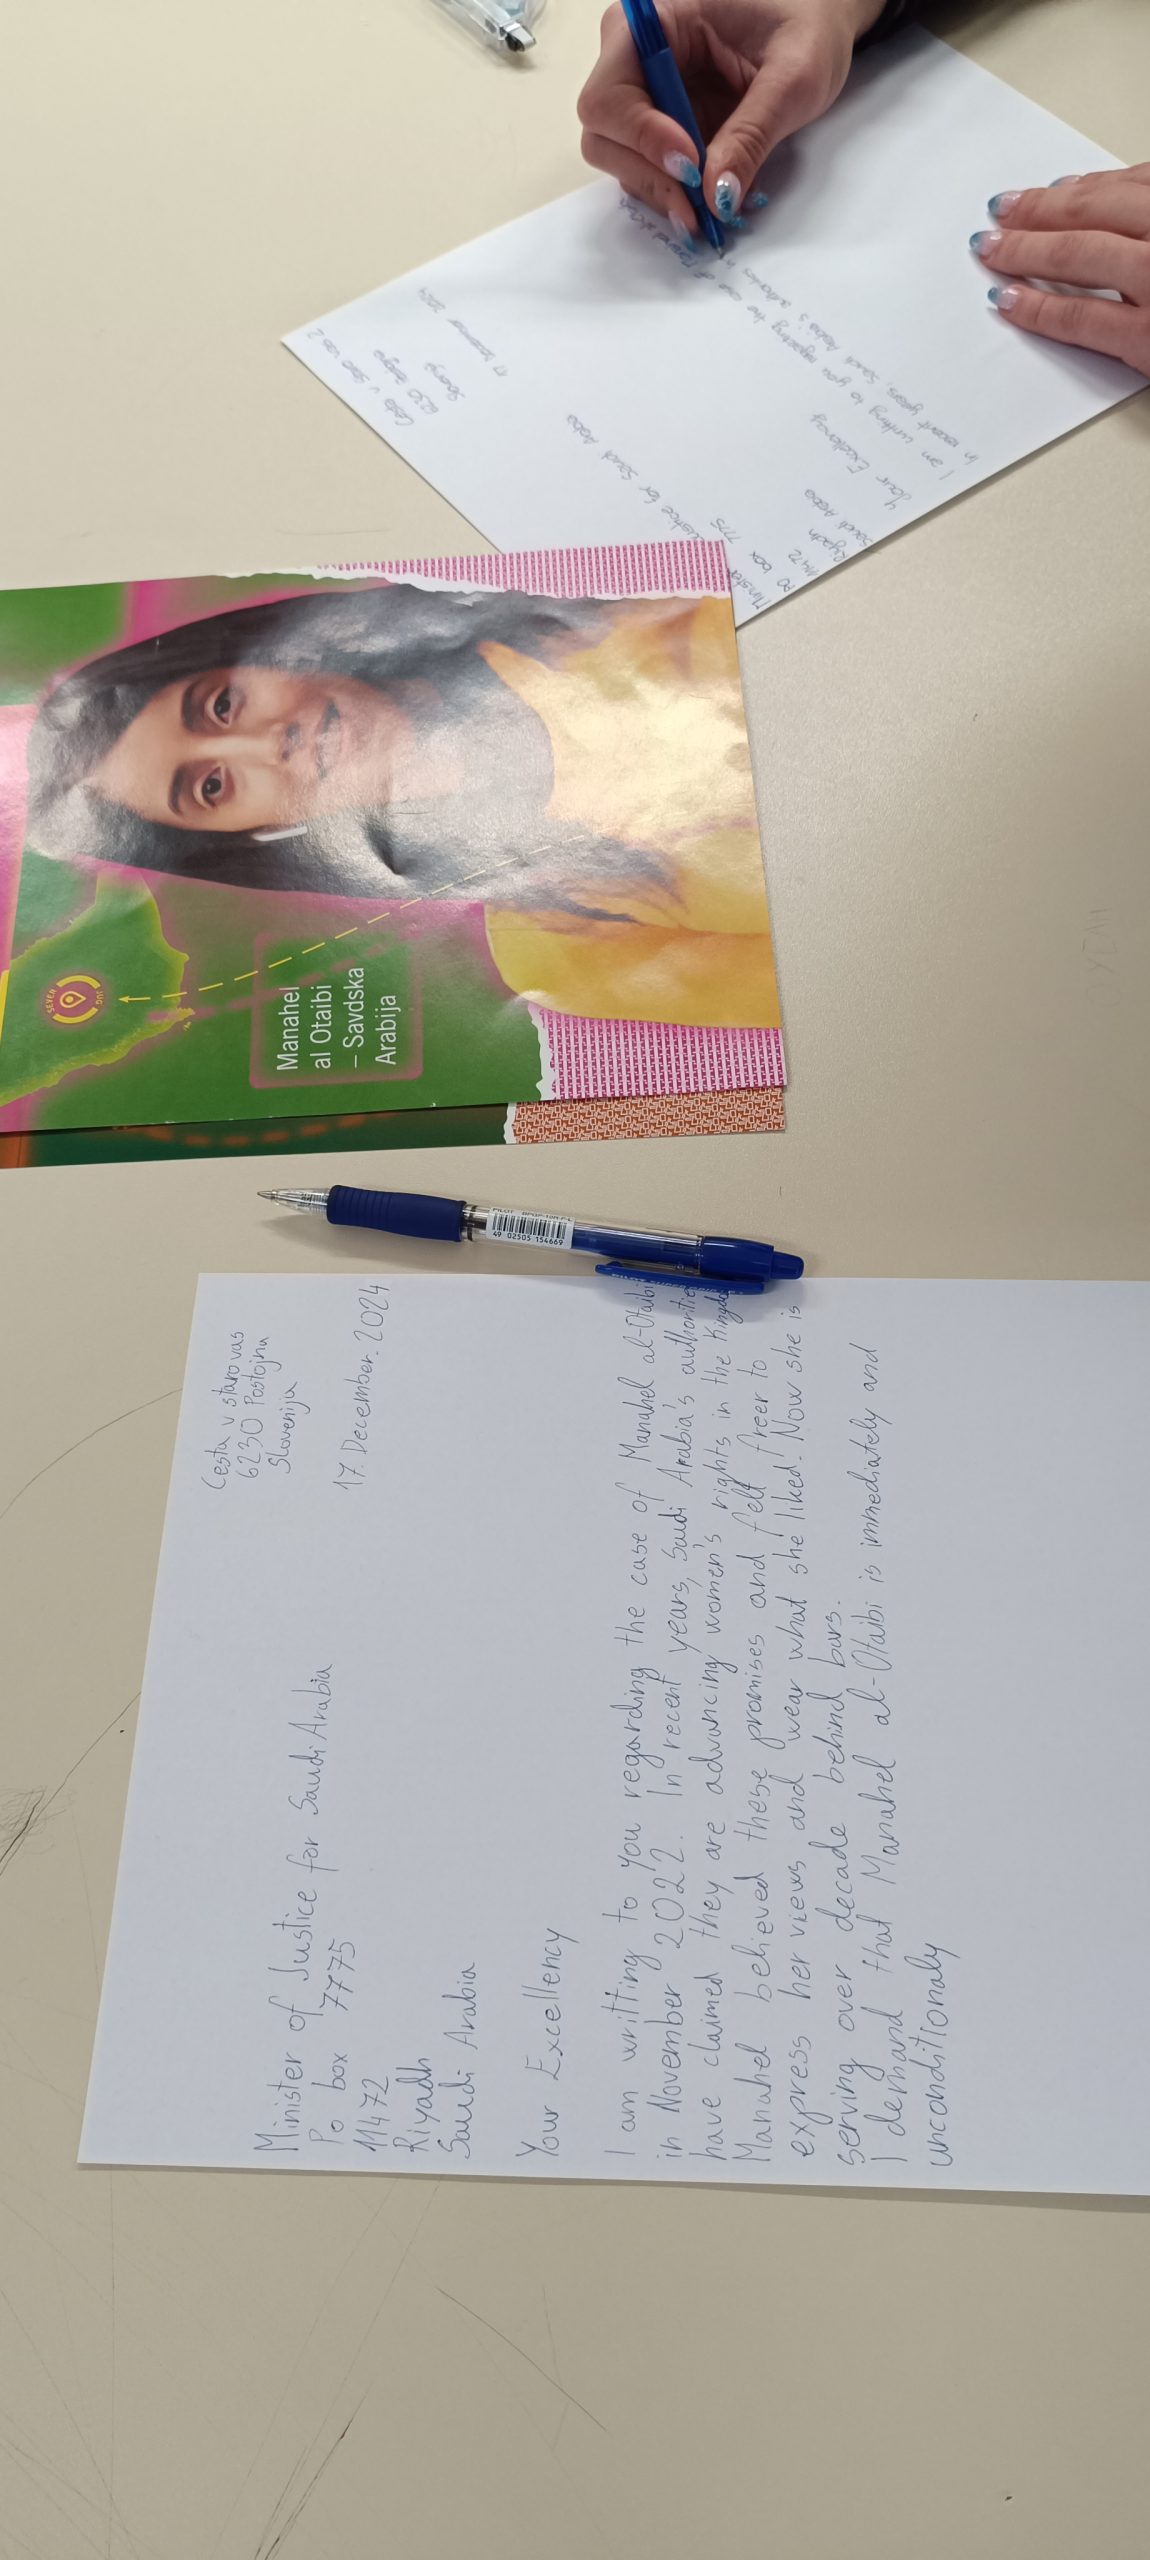 Cesta v staro vas
6230 Postojna
Slovenija
17. December. 2024
Minister of Justice for Saudi Arabia
Po box 7775
11472
Riyadh
Saudi Arabia
Your Excellency
I am writting to you regarding the case of Manahel al-Otaibi
in November 2022. In recent years, Saudi Arabia's authorities
have claimed they are advancing women's rights in the Kingdo
Manahel believed these promises and felt freer to
express her views and wear what she liked. Now she is
serving over decade behind bars.
I demand that Manahel al-Otaibi is immediately and
unconditionaly
Manahel
al Otaibi
– Savdska
Arabija
SEVER
JUG
PILOT
4902505 154669
Cesta v staro vas 2
6230 Postojna
17 December 2024
Minister Justice for Saudi Arabia
PO box 7775
11472
Riyadh
Saudi Arabia
Your Excellency
I am writing to you regarding the case of
In recent years, Saudi Arabia's authorities